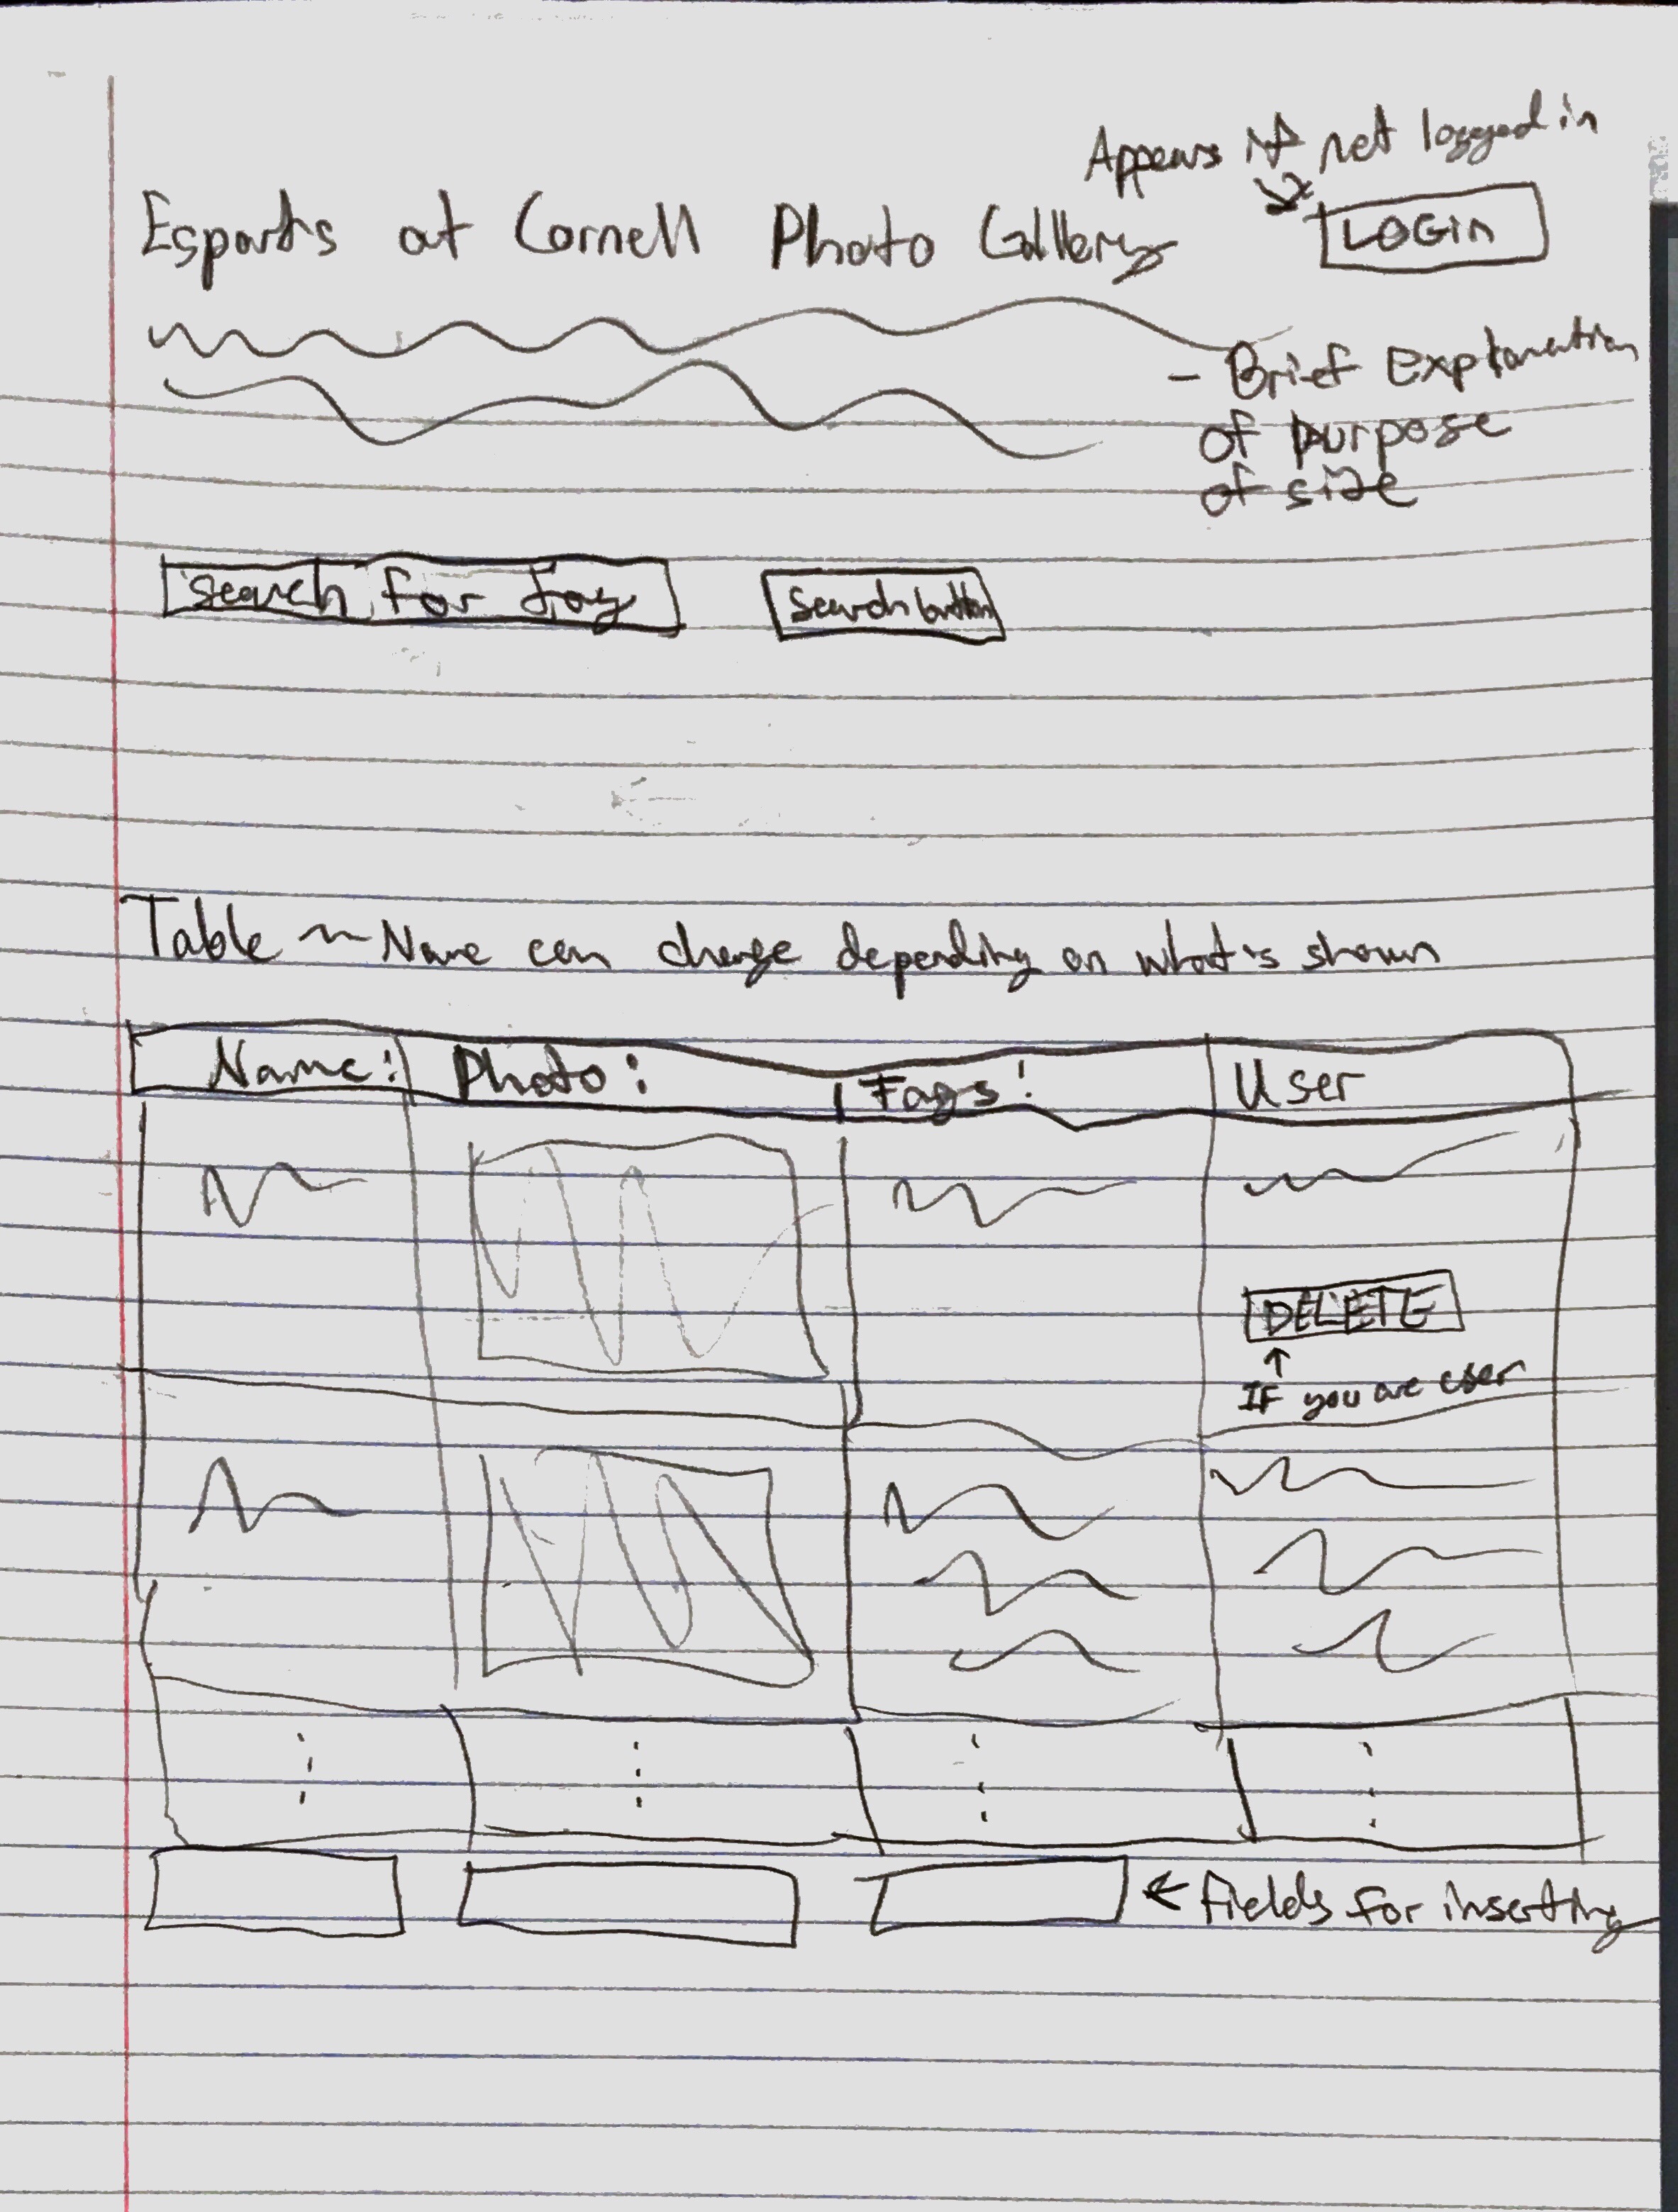 Appears if not logged in
Esports at Cornell Photo Gallery
LOGIN
- Brief Explanation
of purpose
of site
Search for Tag
Search button
Table ~ Name can change depending on what's shown
Name: Photo: Tags: User
DELETE
↑
IF you are user
← Fields for inserting